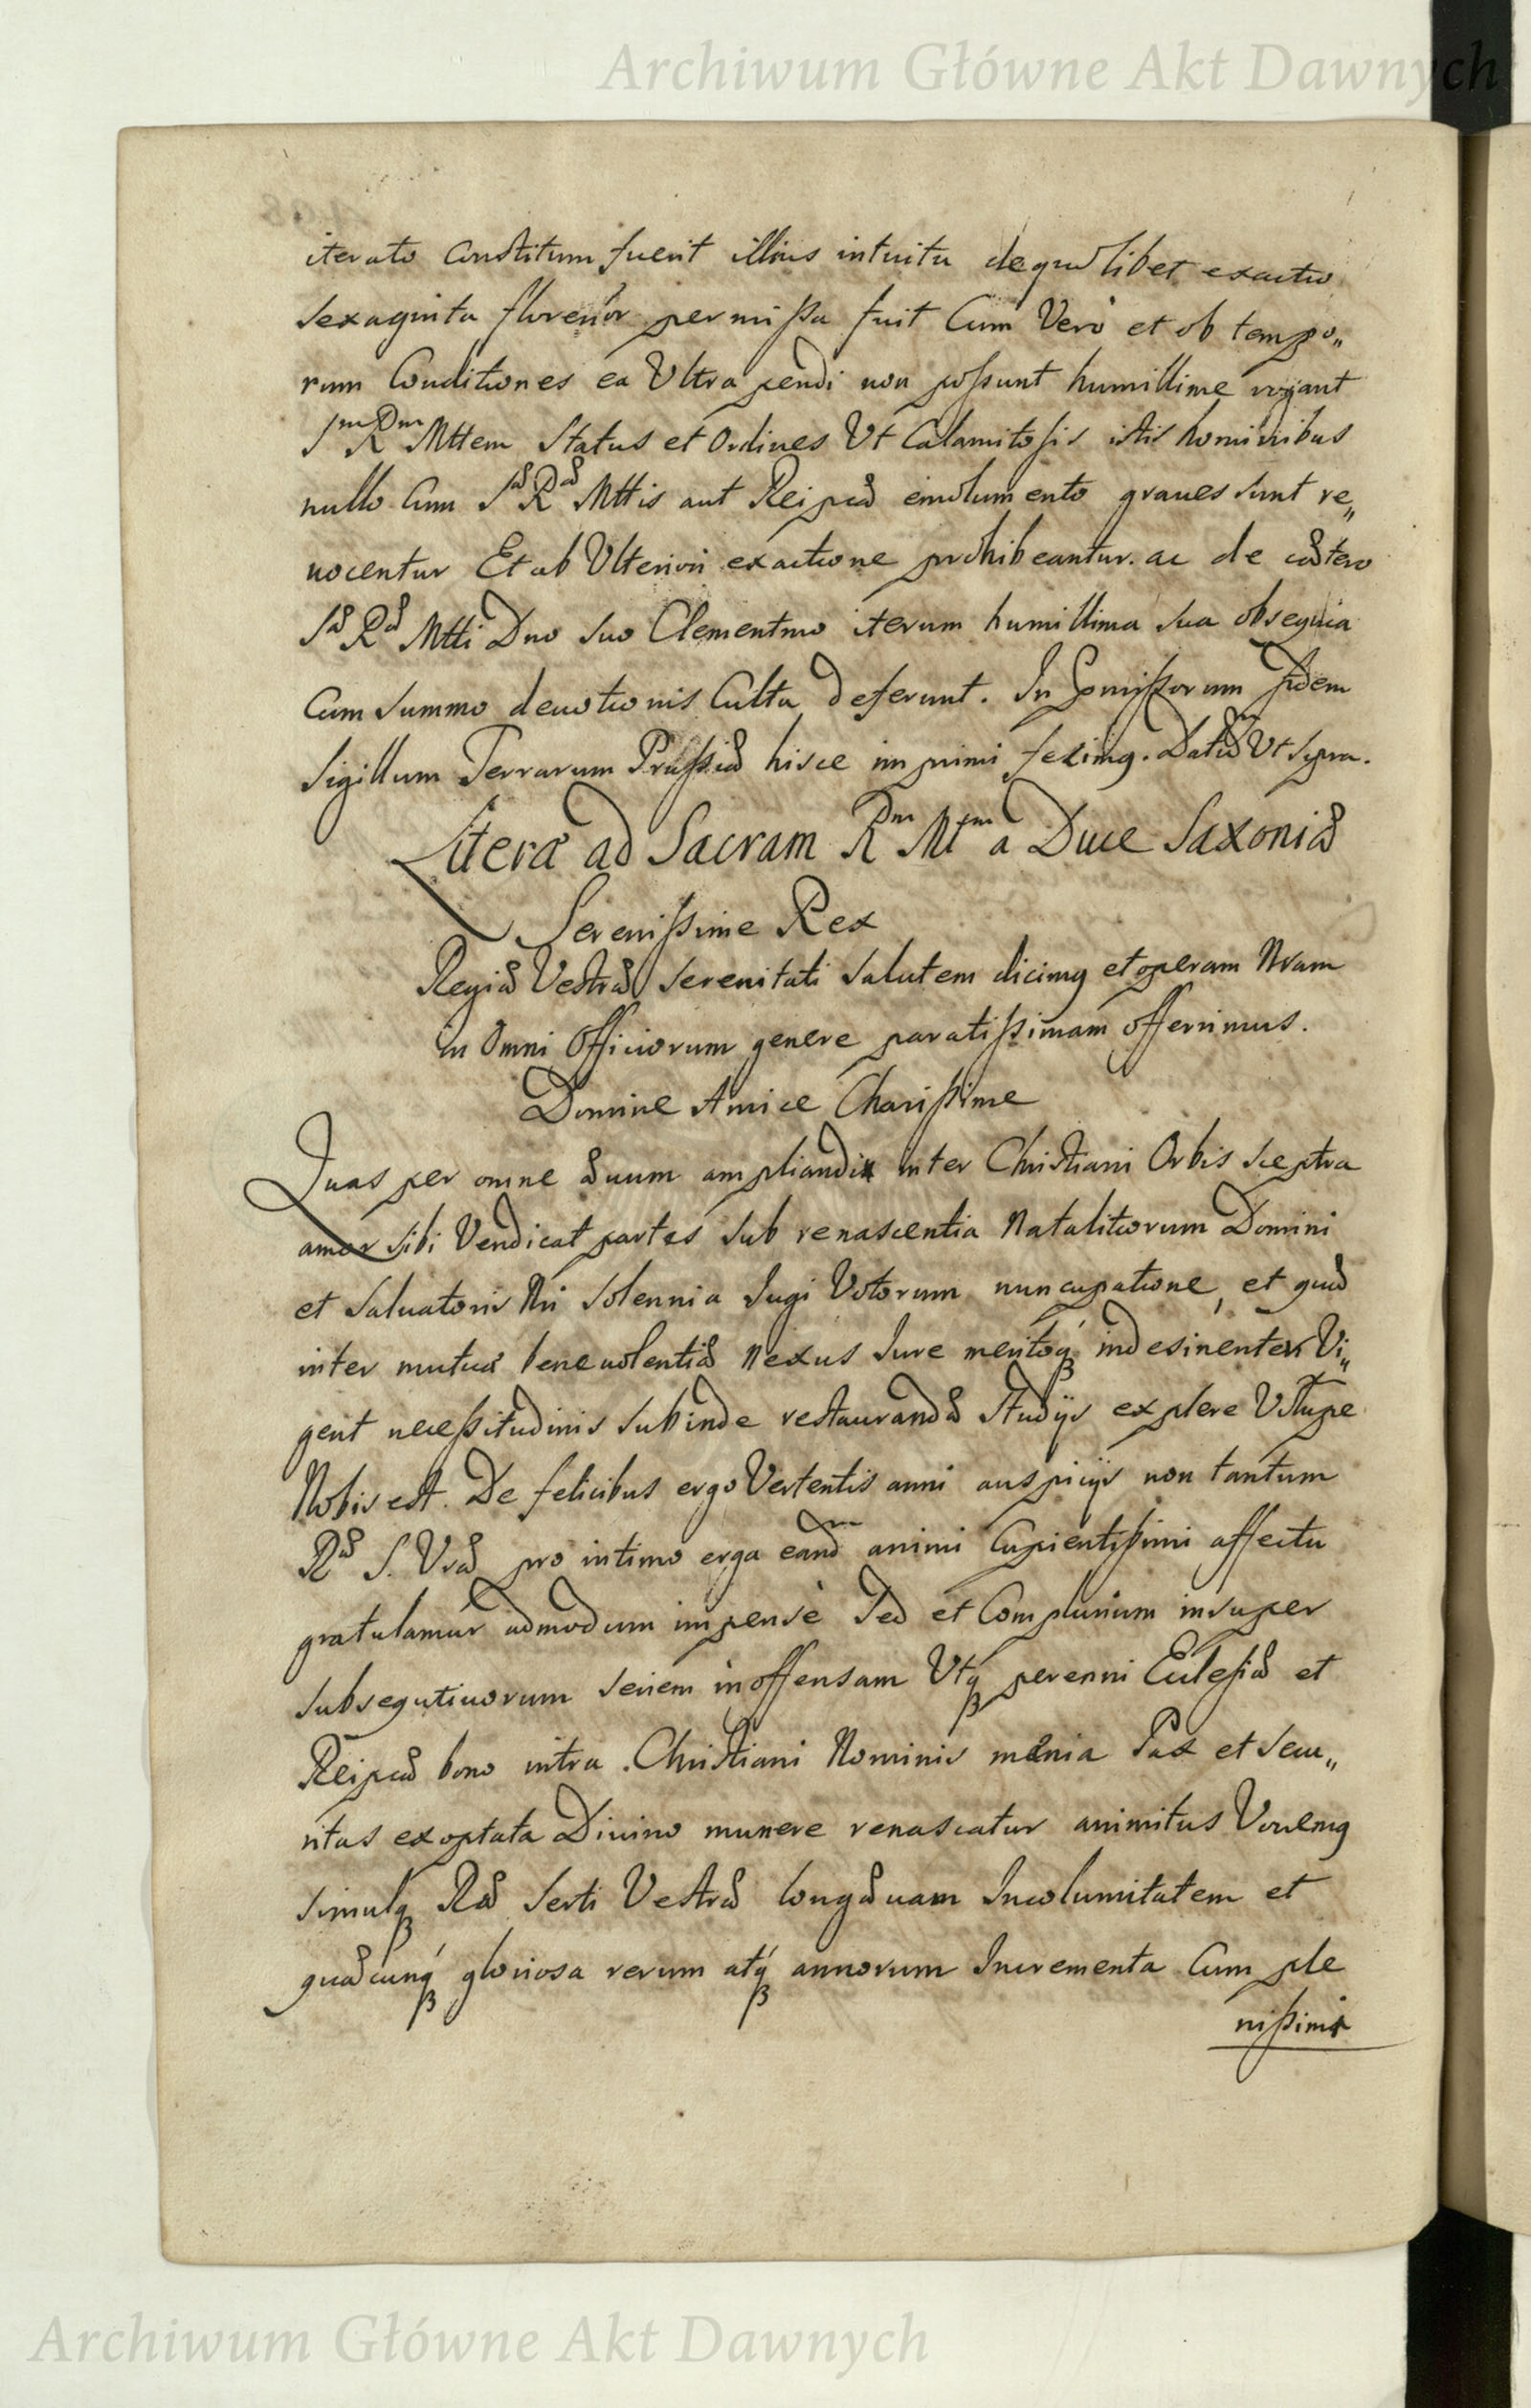 Archiwum Główne Akt Dawnych
iterato Constitum fuerit illius intuitu de quolibet exactio
sexaginta florenor permissa fuit Cum Verò et ob tempo„
rum Conditiones ea Ultra pendi non possunt humillime rogant
Sm Rm Mttem Status et Ordines Ut Calamitosis istis hominibus
nullo Cum Sæ Ræ Mttis aut Reipcæ emolumento graues sunt re„
uocentur Et ab Ulteriori exactione prohibeantur. ac de cætero
Sæ Ræ Mtti Dno suo Clementmo iterum humillima sua obsequia
Cum summo deuotionis Cultu deferunt. In præmissorum fidem
Sigillum Terrarum Prussiæ hisce imprimi fecimq. Datæ Ut supra.
Literæ ad Sacram Rm Mtm a Duce Saxoniæ
Serenissime Rex
Regiæ Vestræ Serenitati salutem dicimq et operam Nram
in Omni Officiorum genere paratissimam offerimus.
Domine Amice Charissime
Quas per omne æuum ampliandi inter Christiani Orbis sceptra
amor sibi Vendicat partes sub renascentia Natalitiorum Domini
et Saluatoris Nri solennia Iugi Votorum nuncupatione, et quæ
inter mutuæ beneuolentiæ nexus Iure meritoq indesinenter Vi„
gent necessitudinis subinde restaurandæ Studijs explere Volupe
Nobis est. De felicibus ergo Vertentis anni auspicijs non tantum
Ræ S. Vræ pro intimo erga eand animi Cupientissimi affectu
gratulamur admodum impensè sed et Complurium insuper
subsequtiuorum seriem inoffensam Utq perenni Eclesiæ et
Reipcæ bono intra Christiani Nominis mænia Pax et secu„
ritas exoptata Diuino munere renascatur animitus Vouemq
simulq Ræ Serti Vestræ longæuam Incolumitatem et
quæcunq gloriosa rerum atq annorum Incrementa Cum ple
nissimi
Archiwum Główne Akt Dawnych